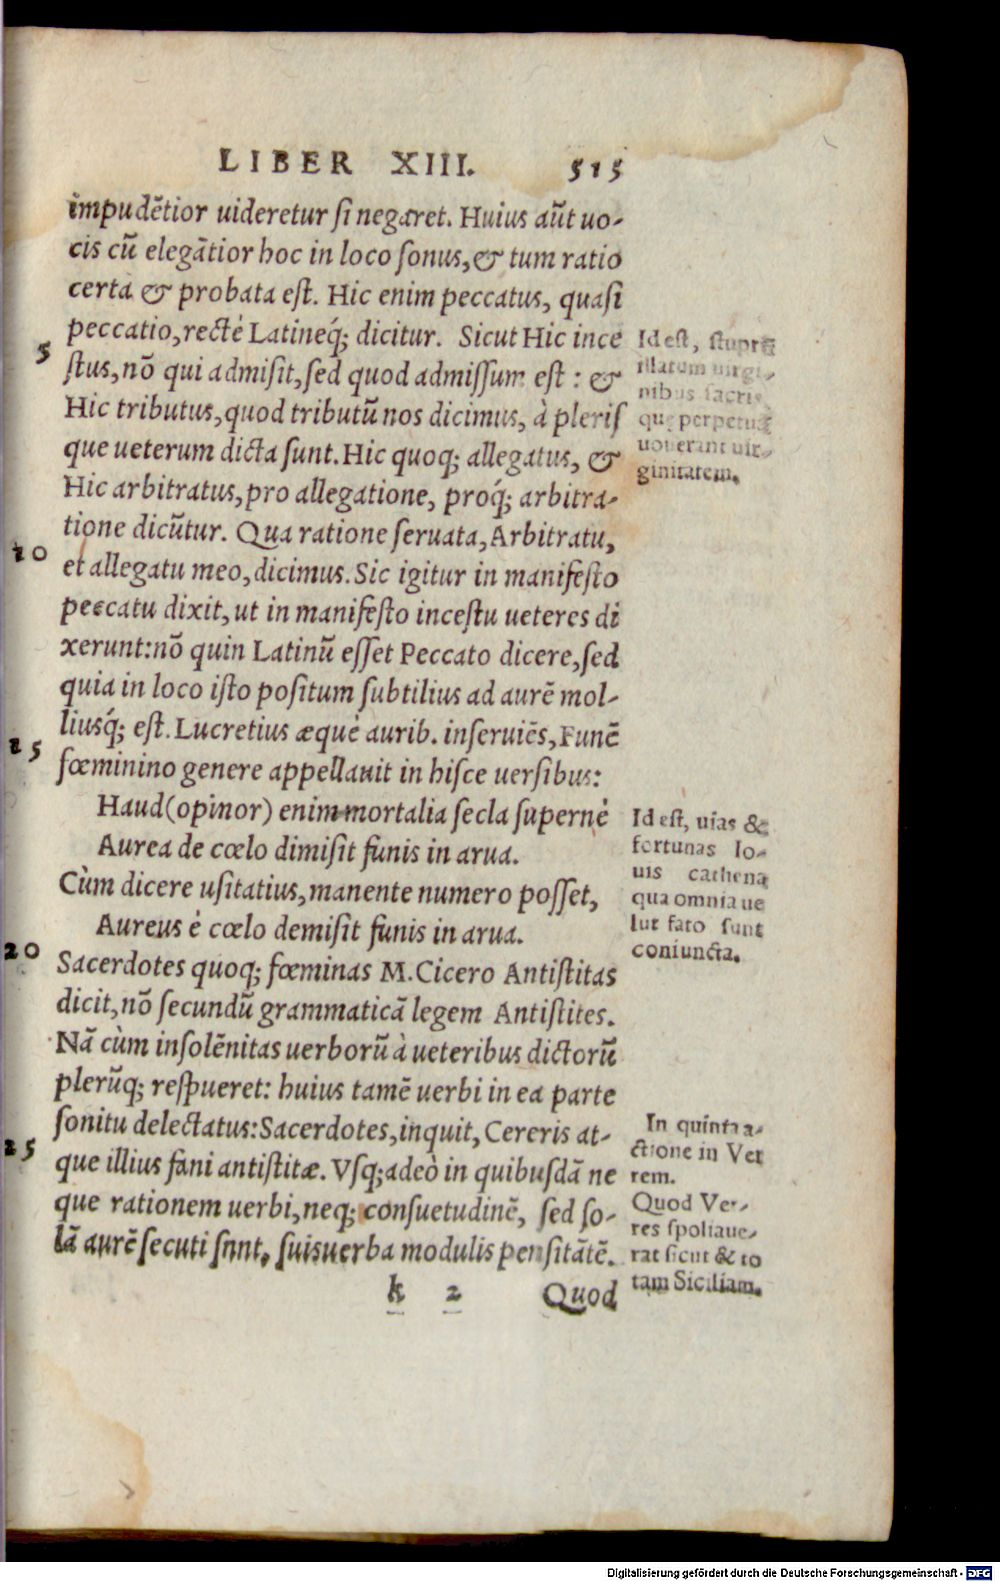 LIBER XIII. 515
impudētior uideretur si negaret. Huius aūt uo-
cis cū elegātior hoc in loco sonus, & tum ratio
certa & probata est. Hic enim peccatus, quasi
peccatio, rectè Latineq́; dicitur. Sicut Hic ince
5
stus, nō qui admisit, sed quod admissum est : &
Hic tributus, quod tributū nos dicimus, à pleris
que ueterum dicta sunt. Hic quoq; allegatus, &
Hic arbitratus, pro allegatione, proq́; arbitra-
tione dicūtur. Qua ratione seruata, Arbitratu,
10
et allegatu meo, dicimus. Sic igitur in manifesto
peccatu dixit, ut in manifesto incestu ueteres di
xerunt: nō quin Latinū esset Peccato dicere, sed
quia in loco isto positum subtilius ad aurē mol-
liusq́; est. Lucretius æquè aurib. inseruiēs, Funē
15
fœminino genere appellauit in hisce uersibus:
Haud (opinor) enim mortalia secla supernè
Aurea de cœlo dimisit funis in arua.
Cùm dicere usitatius, manente numero posset,
Aureus è cœlo demisit funis in arua.
20
Sacerdotes quoq; fœminas M. Cicero Antistitas
dicit, nō secundū grammaticā legem Antistites.
Nā cùm insolēnitas uerborū à ueteribus dictorū
plerūq; respueret: huius tamē uerbi in ea parte
sonitu delectatus: Sacerdotes, inquit, Cereris at-
25
que illius fani antistitæ. Vsq; adeò in quibusdā ne
que rationem uerbi, neq; consuetudinē, sed so-
lā aurē secuti snnt, suisuerba modulis pensitātē.
k 2 Quod
Id est, stupri
illatum uirgi-
nibus sacris
quę perpetuā
uouerant uir-
ginitatem.
Id est, uias &
fortunas Io-
uis cathena
qua omnia ue
lut fato sunt
coniuncta.
In quinta a-
ctione in Ver
rem.
Quod Ver-
res spoliaue-
rat sicut & to
tam Siciliam.
Digitalisierung gefördert durch die Deutsche Forschungsgemeinschaft - DFG